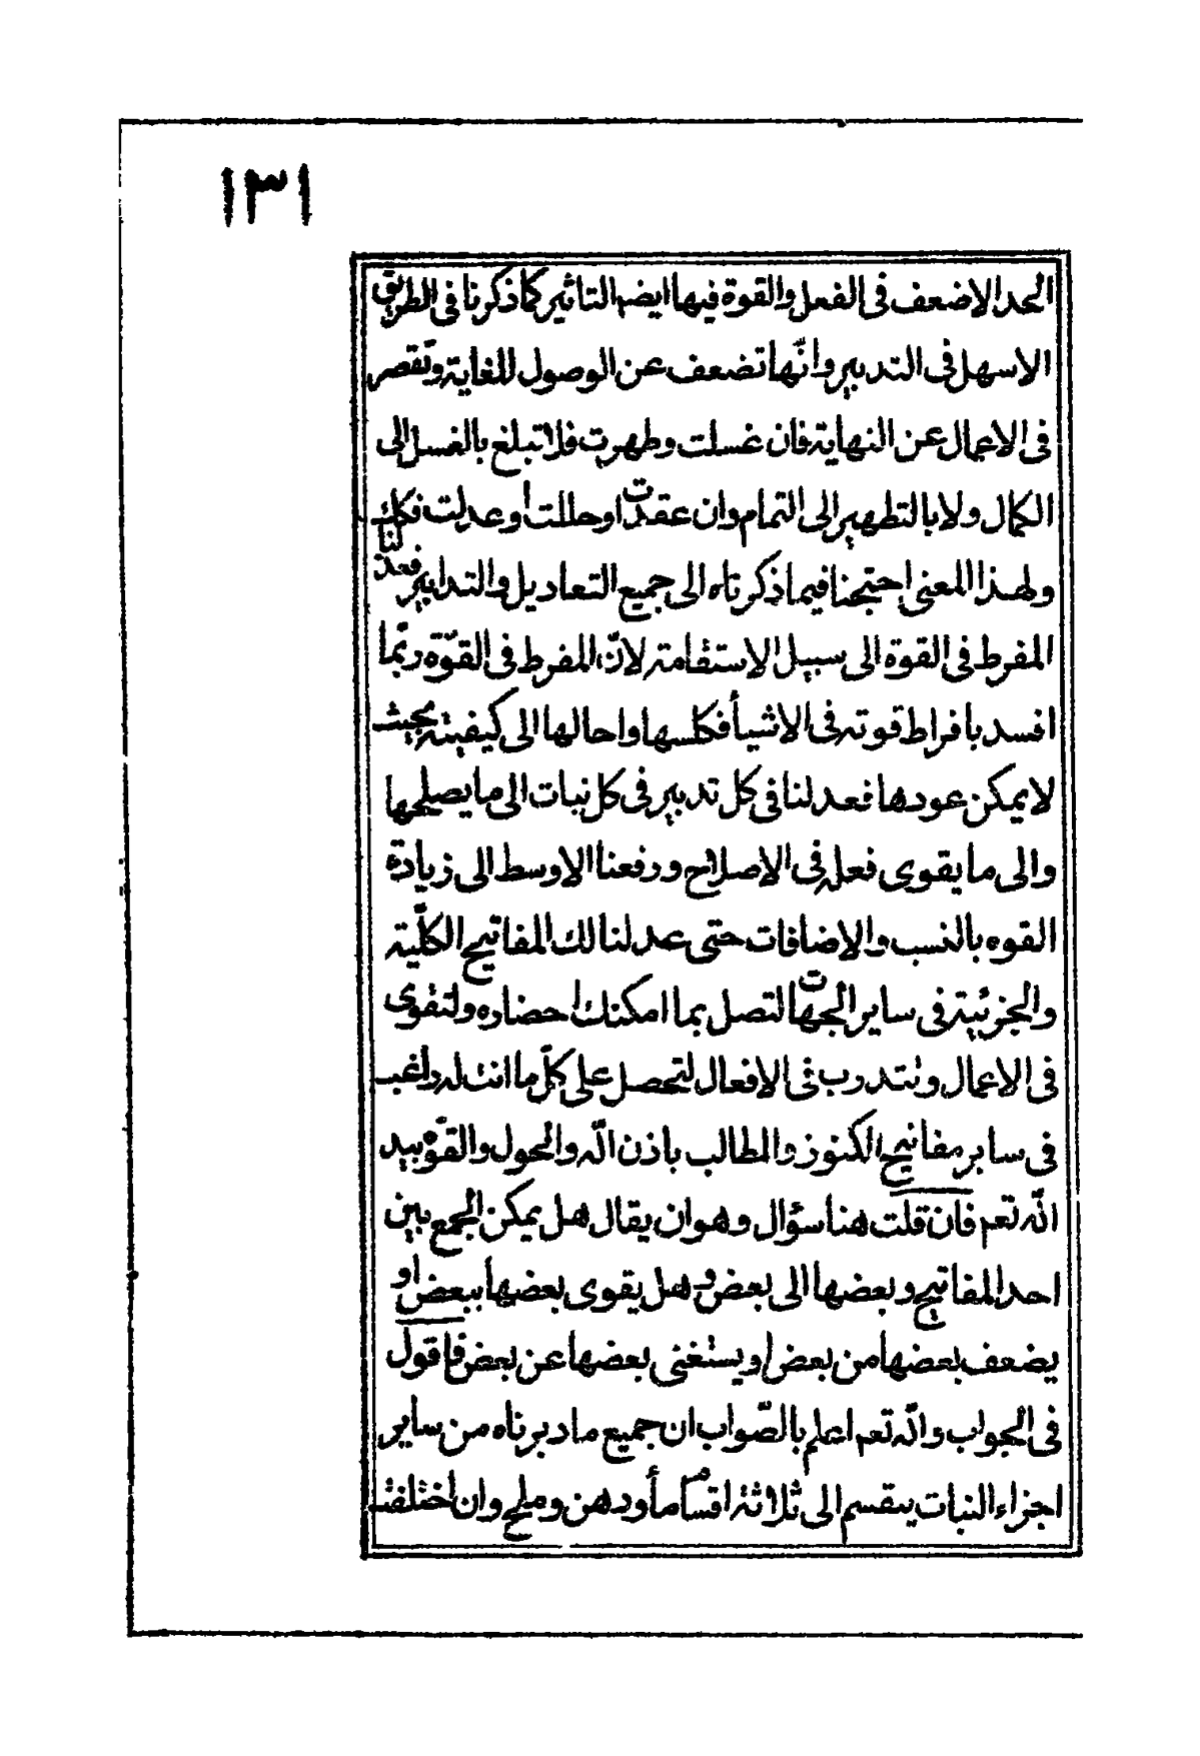 ١٣١
الحد الاضعف فى الفعل والقوة فيها ايضا التاثير كما ذكرنا فى الطريق
الاسهل فى التدبير وانّها تضعف عن الوصول للغاية وتقصر
فى الاعمال عن النهاية فان غسلت وطهرت فلا تبلغ بالغسل الى
الكمال ولا بالتطهير الى التمام وان عقدت او حللت او عدلت فكك
ولهذا المعنى احتجنا فيما ذكرناه الى جميع التعاديل والتدابير فعدلنا
المفرط فى القوة الى سبيل الاستقامة لانّ المفرط فى القوّة ربّما
افسد بافراط قوته فى الاشيأ فكلسها واحالها الى كيفية بحيث
لا يمكن عودها فعدلنا فى كل تدبير فى كل نبات الى ما يصلحها
والى ما يقوى فعله فى الاصلاح ورفعنا الاوسط الى زيادة
القوه بالنسب والاضافات حتى عدلنا لك المفاتيح الكلّية
والجزئية فى ساير الجهات لتصل بما امكنك احضاره ولتقوى
فى الاعمال وتتدرب فى الافعال لتحصل على كلّ ما انت له راغب
فى ساير مفاتيح الكنوز والمطالب باذن الله والحول والقوّة بيد
الله تعم فان قلت هنا سؤال وهو ان يقال هل يمكن الجمع بين
احد المفاتيح وبعضها الى بعض وهل يقوى بعضها ببعض او
يضعف بعضها من بعض او يستغنى بعضها عن بعض فاقول
فى الجواب والله تعم اعلم بالصّواب ان جميع ما دبرناه من ساير
اجزاء النبات ينقسم الى ثلاثة اقسام مأ ودهن وملح وان اختلفت